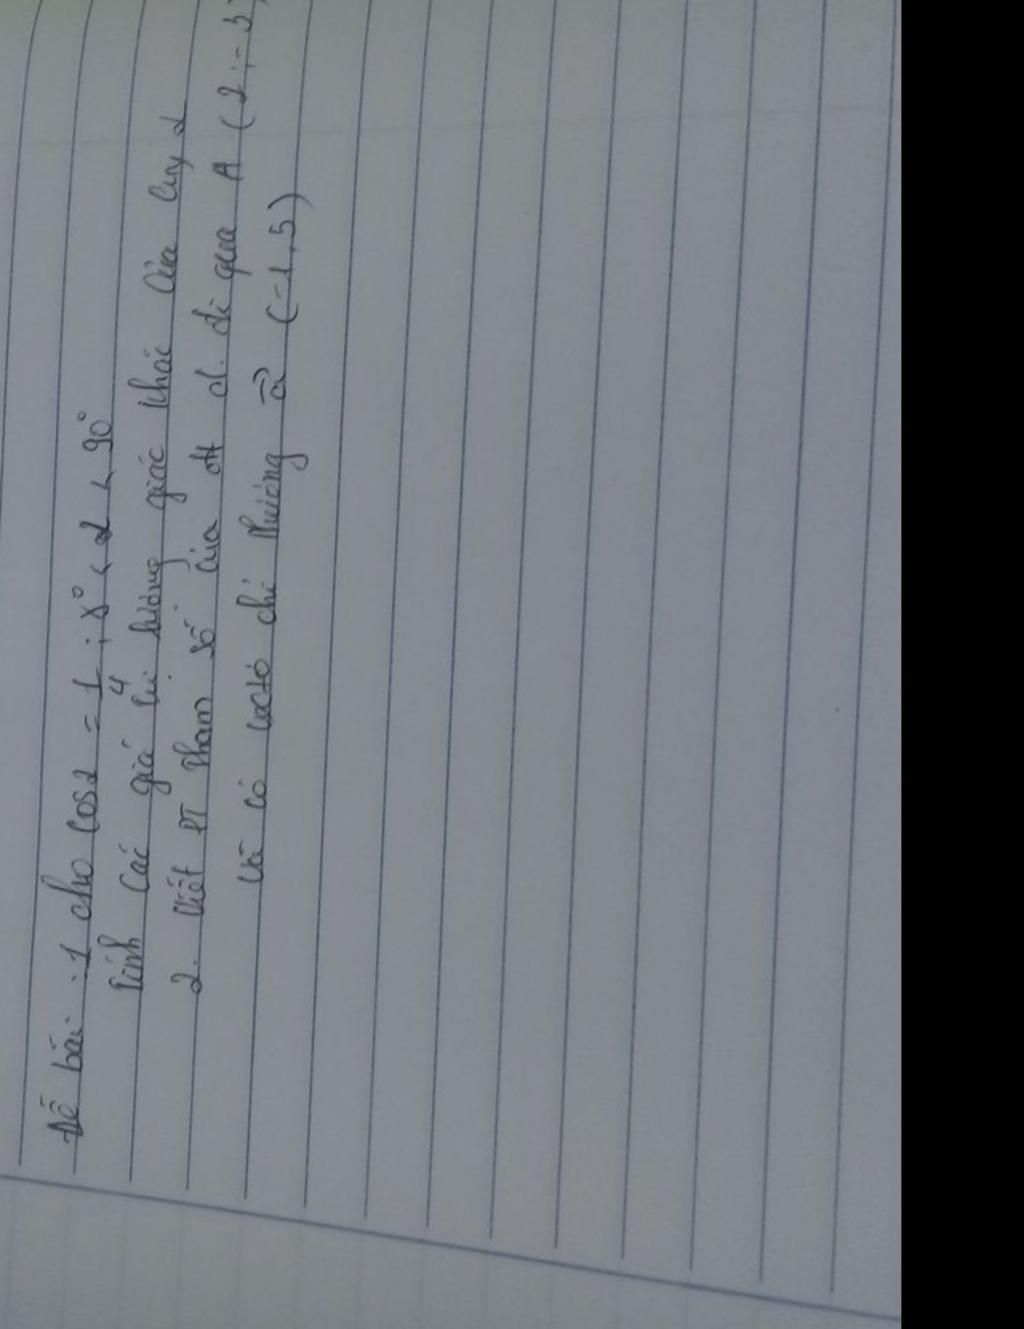 Đề bài: 1 cho cosα = 1/4 ; 0° < α < 90°
Tính các giá trị lượng giác khác của cung α
2. Viết PT tham số của đt d. đi qua A ( 2 ; -3)
và có vectơ chỉ phương a⃗ (-1,5)